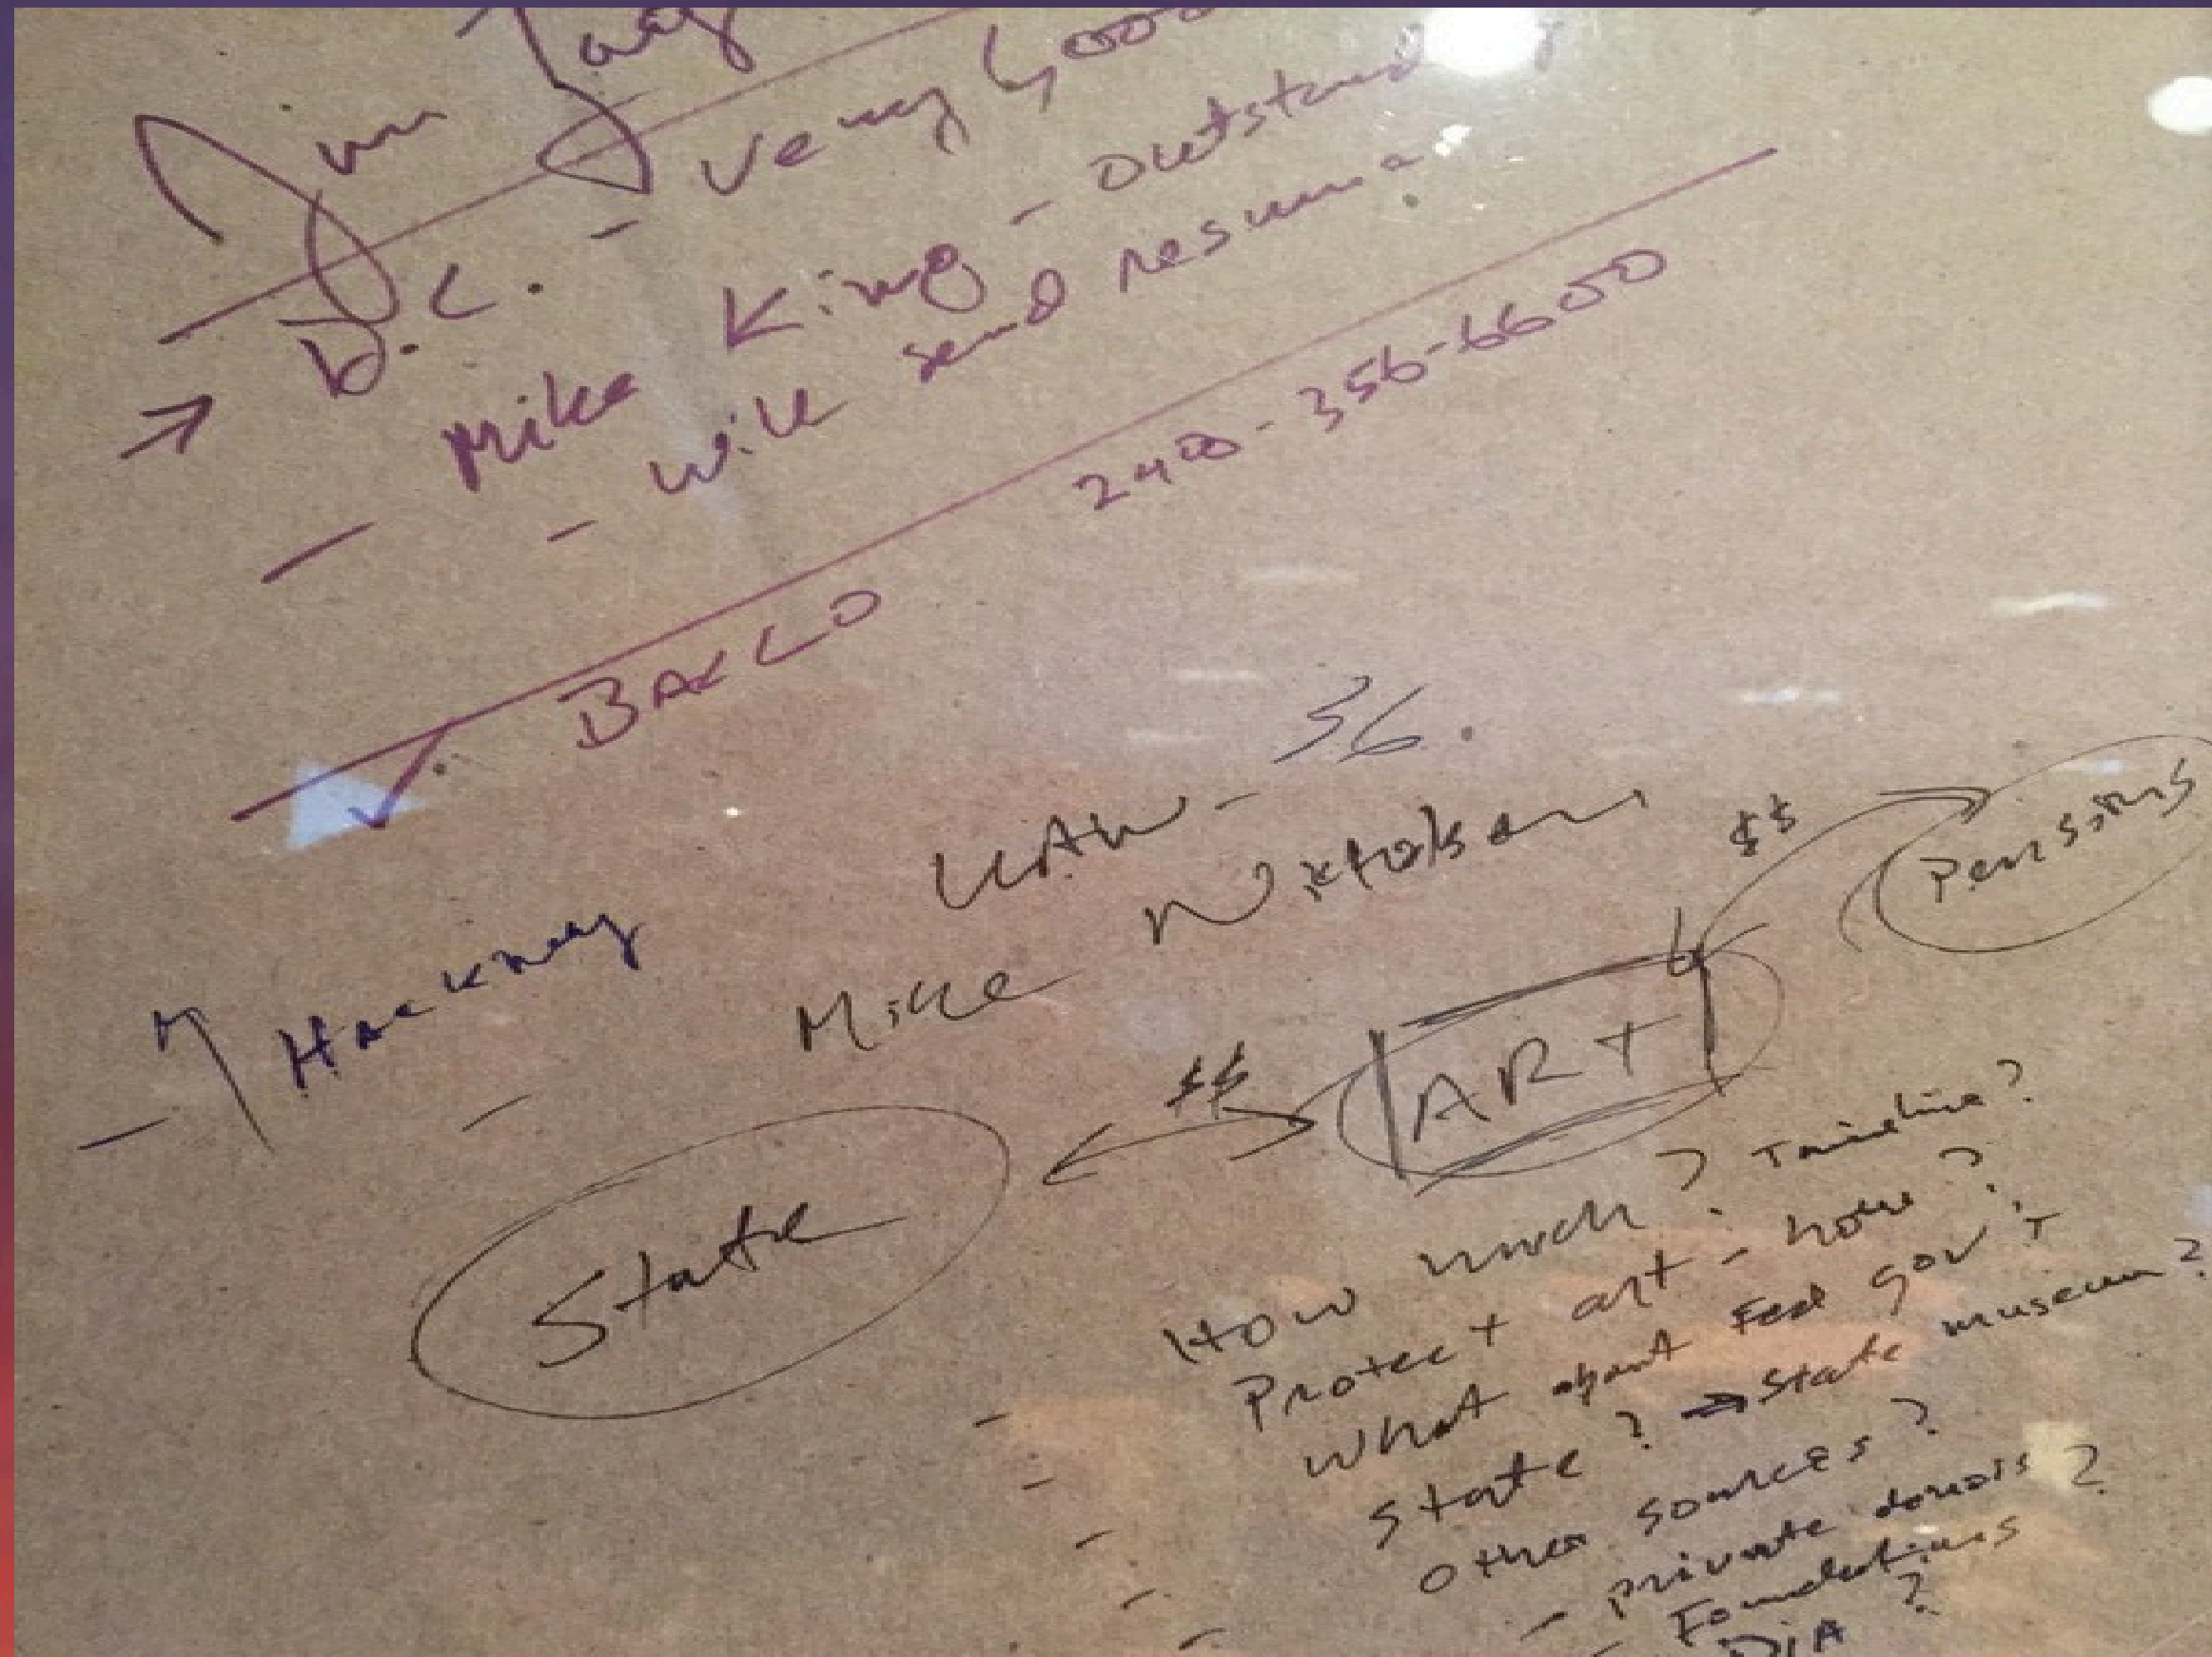 Jim
D.C. - very Good
- Mike King - outstand
- will send resume
✓ BALCO 2400-356-6600
- Hackney UAW - 36.
- Mike
$$ Pensions
State $$ ART
- How much? Timeline?
- Protect art - how?
- What about Fed gov't?
- State? → State museum?
- other sources?
- private donors?
- Foundations
DIA?